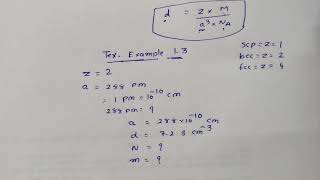 d = z × M / a³ × NA
Tex. Example 1.3
scp = z = 1
bcc = z = 2
fcc = z = 4
z = 2
a = 288 pm
= 1 pm = 10⁻¹⁰ cm
288 pm = ?
a = 288 × 10⁻¹⁰ cm
d = 7.2 g cm⁻³
N = ?
m = ?